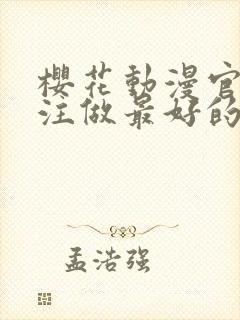 櫻花動漫官
注做最好的
孟浩强